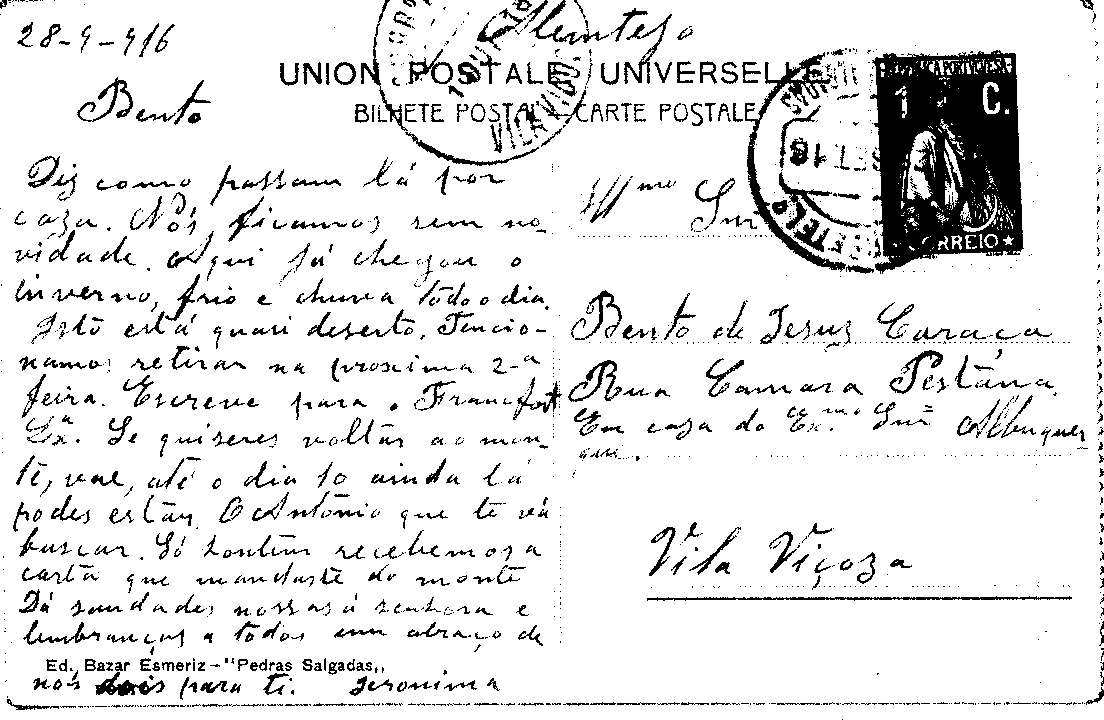 28-9-916
Alemtejo
UNION POSTALE UNIVERSELLE
BILHETE POSTAL - CARTE POSTALE
REPUBLICA PORTUGUESA
1 C.
CORREIO
VILA VIÇOSA
Bento
Diz como passam lá por
caza. Nós, ficamos sem no-
vidade. Aqui já chegou o
inverno, frio e chuva todo o dia.
Isto está quasi deserto. Tencio-
namos retirar na proxima 2-a
feira. Escreve para o Francfort
Lx.a. Se quiseres voltar ao mon-
te, vae, até o dia 10 ainda lá
podes estar. O António que te vá
buscar. Só hontem recebemos a
carta que mandaste do monte
Dá saudades nossas á senhora e
lembranças a todos um abraço de
Ed. Bazar Esmeriz - "Pedras Salgadas,,
nós dois para ti. Jeronima
Ill.mo Snr.
Bento de Jesus Caraça
Rua Camara Pestana
Em caza do Ex.mo Snr Albuquer
que.
Vila Viçoza